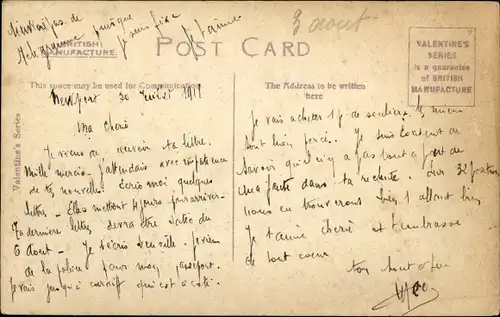 N'écris pas de
télégramme puisque
j'suis fixé
Je t'aime
3 aout
BRITISH
MANUFACTURE
POST CARD
VALENTINE'S
SERIES
is a guarantee
of BRITISH
MANUFACTURE
This space may be used for Communication
The Address to be written
here
Valentine's Series
Newport 30 Juillet 1911
Ma chérie
Je viens de recevoir ta lettre.
Mille mercis. J'attendais avec impatience
de tes nouvelles. Ecris moi quelques
lettres. Elles mettent 4 jours pour arriver.
Ta dernière lettre devra être datée du
6 aout. Je t'écris Je viens
de la police pour mon passeport.
Je vais jusqu'à Cardiff qui est à côté.
Je vais acheter 1 p. de souliers, les miens
sont bien percés. Je suis content de
savoir qu'il n'y a pas tout à fait de
ma faute dans ta rechute. Sur 32
nous en trouverons bien 1 allant bien
Je t'aime chérie et t'embrasse
de tout coeur
ton